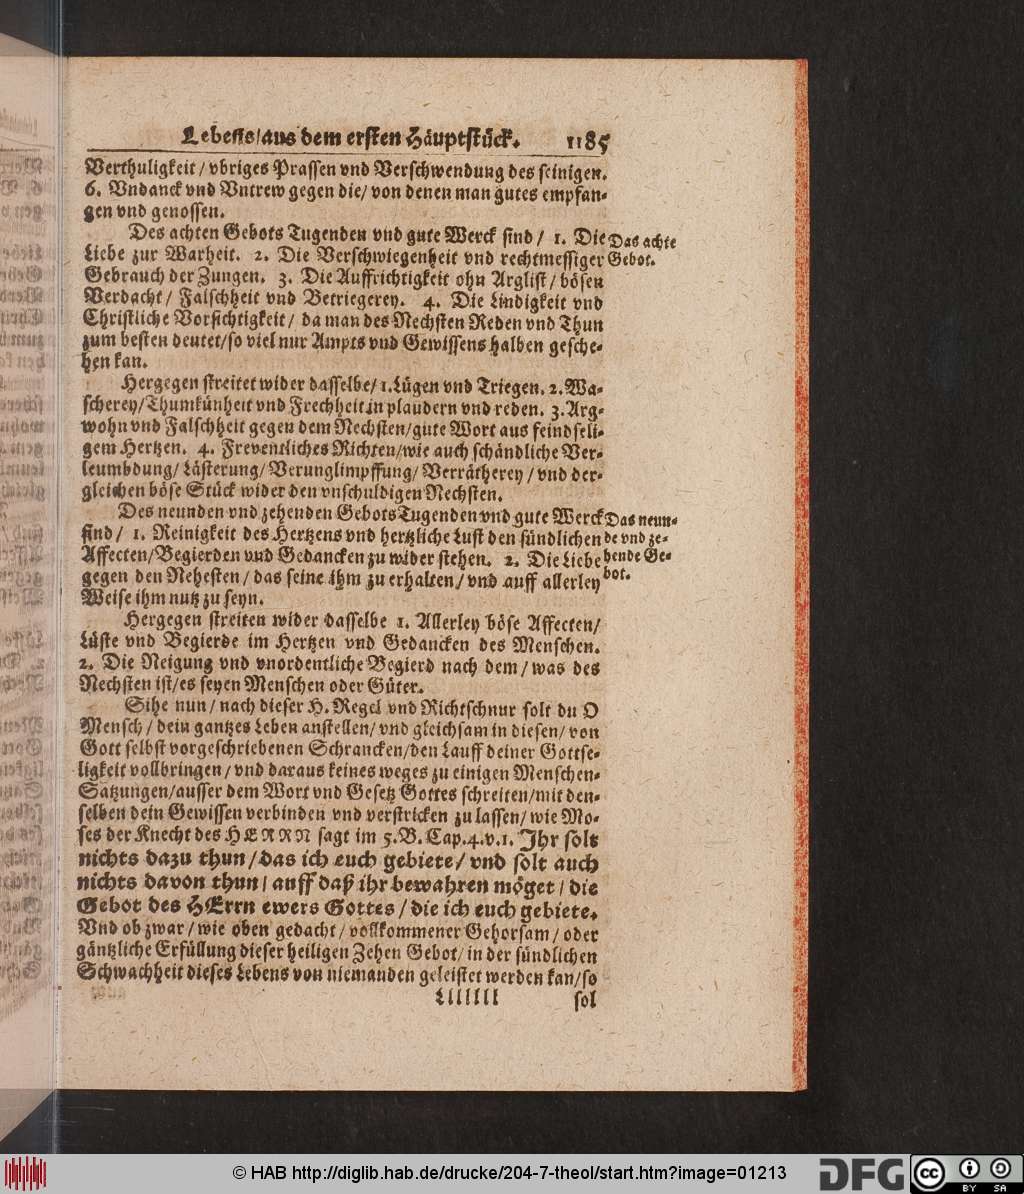 Lebens/aus dem ersten Häuptstück. 1185
Verthuligkeit / vbriges Prassen vnd Verschwendung des seinigen.
6. Vndanck vnd Vntrew gegen die/ von denen man gutes empfan-
gen vnd genossen.
Des achten Gebots Tugenden vnd gute Werck sind / 1. Die
Das achte
Liebe zur Warheit. 2. Die Verschwiegenheit vnd rechtmessiger
Gebot.
Gebrauch der Zungen. 3. Die Auffrichtigkeit ohn Arglist / bösen
Verdacht / Falschheit vnd Betriegerey. 4. Die Lindigkeit vnd
Christliche Vorsichtigkeit / da man des Nechsten Reden vnd Thun
zum besten deutet/so viel nur Ampts vnd Gewissens halben gesche-
hen kan.
Hergegen streitet wider dasselbe/ 1.Lügen vnd Triegen. 2. Wa-
scherey/Thumkünheit vnd Frechheit in plaudern vnd reden. 3. Arg-
wohn vnd Falschheit gegen dem Nechsten/gute Wort aus feindseli-
gem Hertzen. 4. Freventliches Richten/wie auch schändliche Ver-
leumbdung/ Lästerung/ Verunglimpffung/ Verrätherey / vnd der-
gleichen böse Stück wider den vnschuldigen Nechsten.
Des neunden vnd zehenden Gebots Tugenden vnd gute Werck
Das neun-
sind / 1. Reinigkeit des Hertzens vnd hertzliche Lust den sündlichen
de vnd ze-
Affecten/Begierden vnd Gedancken zu wider stehen. 2. Die Liebe
hende Ge-
gegen den Nehesten / das seine ihm zu erhalten / vnd auff allerley
bot.
Weise ihm nutz zu seyn.
Hergegen streiten wider dasselbe 1. Allerley böse Affecten/
Lüste vnd Begierde im Hertzen vnd Gedancken des Menschen.
2. Die Neigung vnd vnordentliche Begierd nach dem / was des
Nechsten ist/es seyen Menschen oder Güter.
Sihe nun / nach dieser H. Regel vnd Richtschnur solt du O
Mensch / dein gantzes Leben anstellen/ vnd gleichsam in diesen/ von
Gott selbst vorgeschriebenen Schrancken/den Lauff deiner Gottse-
ligkeit vollbringen / vnd daraus keines weges zu einigen Menschen-
Satzungen/ausser dem Wort vnd Gesetz Gottes schreiten/mit den-
selben dein Gewissen verbinden vnd verstricken zu lassen/ wie Mo-
ses der Knecht des HERRN sagt im 5. B. Cap.4.v.1. Ihr solt
nichts dazu thun / das ich euch gebiete / vnd solt auch
nichts davon thun / auff daß ihr bewahren möget / die
Gebot des HErrn ewers Gottes / die ich euch gebiete.
Vnd ob zwar / wie oben gedacht / vollkommener Gehorsam / oder
gäntzliche Erfüllung dieser heiligen Zehen Gebot/ in der sündlichen
Schwachheit dieses Lebens von niemanden geleistet werden kan/so
Lllllll
sol
© HAB http://diglib.hab.de/drucke/204-7-theol/start.htm?image=01213
DFG
cc
BY SA